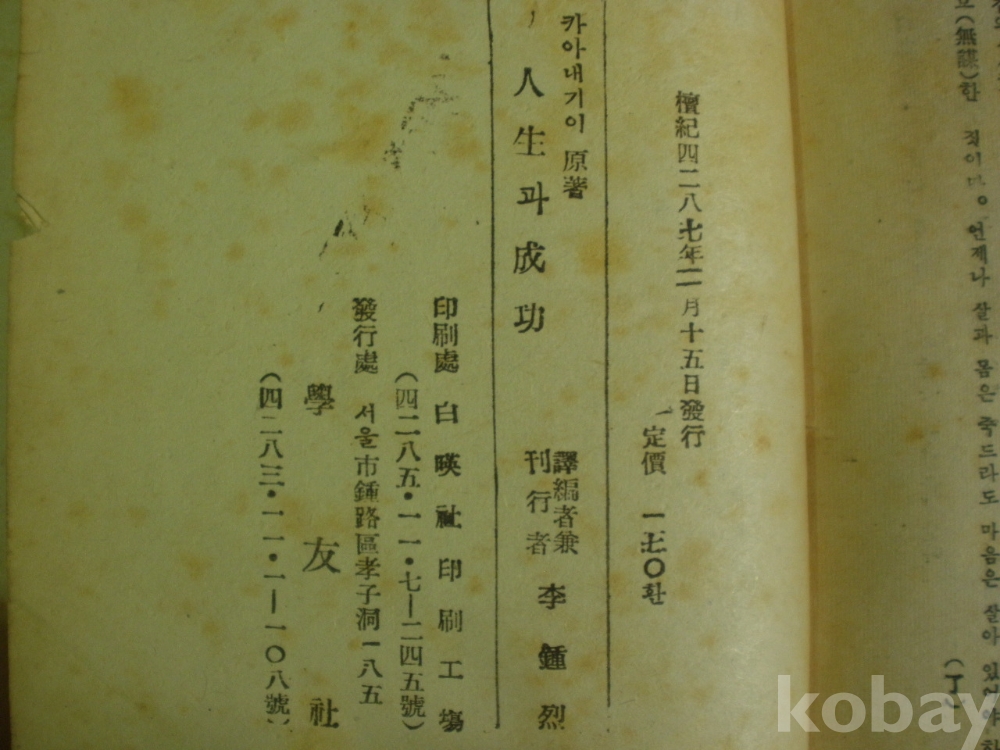 고(無謀)한 것이다。 언제나 살과 몸은 죽드라도 마음은 살아
檀紀四二八七年二月十五日發行
定價 一七〇환
카아내기이 原著
人生과成功
譯編者兼
刊行者 李鍾烈
印刷處 白暎社印刷工場
(四二八五·一一·七—二四五號)
發行處 서울市鍾路區孝子洞一八五
學友社
(四二八三·一一·一—一〇八號)
kobay